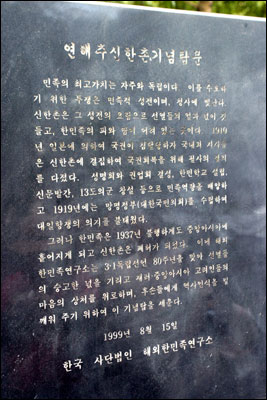 연해주신한촌기념탑문
민족의 최고가치는 자주와 독립이다. 이를 수호하
기 위한 투쟁은 민족적 성전이며, 청사에 빛난다.
신한촌은 그 성전의 요람으로 선열들의 얼과 넋이 깃
들고, 한민족의 피와 땀이 어려 있는 곳이다. 1910
년 일본에 의하여 국권이 침탈당하자 국내외 지사들
은 신한촌에 결집하여 국권회복을 위해 필사의 결의
를 다졌다. 성명회와 권업회 결성, 한민학교 설립,
신문발간, 13도의군 창설 등으로 민족역량을 배양하
고 1919년에는 망명정부(대한국민의회)를 수립하여
대일항쟁의 의기를 불태웠다.
그러나 한민족은 1937년 불행하게도 중앙아시아에
흩어지게 되고 신한촌은 폐허가 되었다. 이에 해외
한민족연구소는 3·1독립선언 80주년을 맞아 선열들
의 숭고한 넋을 기리고 재러·중앙아시아 고려인들의
마음의 상처를 위로하며, 후손들에게 역사인식을 일
깨워 주기 위하여 이 기념탑을 세운다.
1999년 8월 15일
한국 사단법인 해외한민족연구소